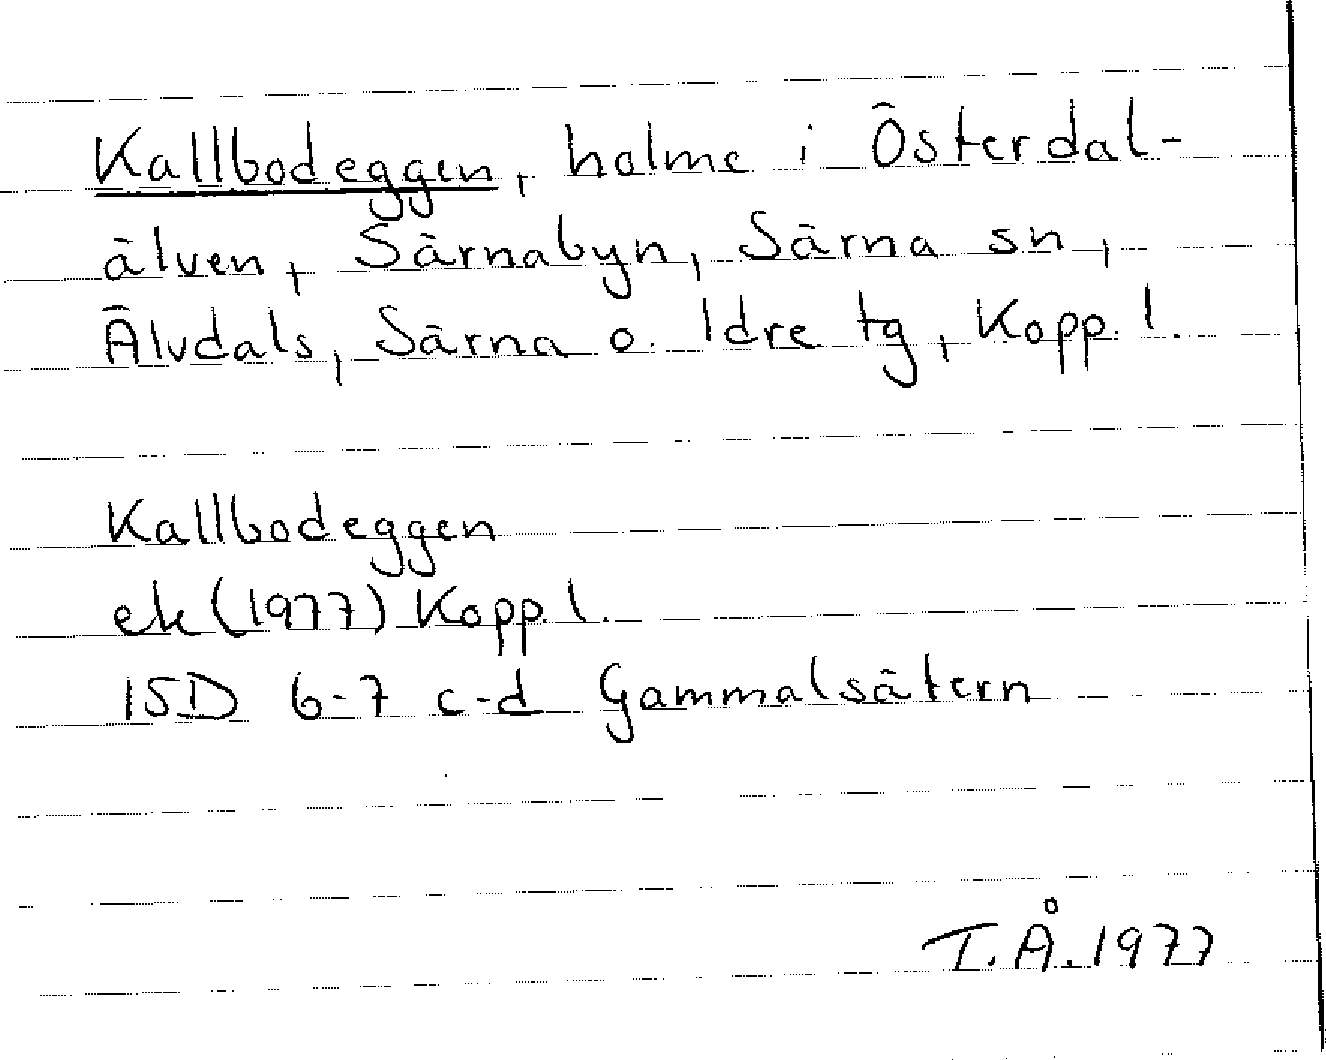 Kallbodeggen, holme i Österdal-
älven, Särnabyn, Särna sn,
Älvdals, Särna o. Idre tg, Kopp. l.
Kallbodeggen
ek (1977) Kopp. l.
15D 6-7 c-d Gammalsätern
T.Å. 1977